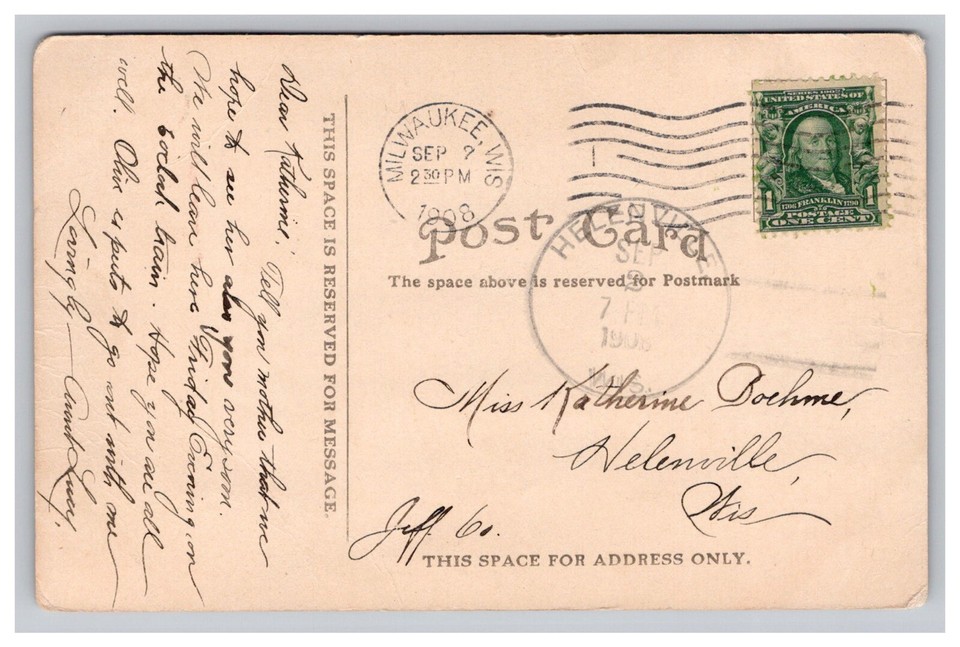 Dear Katherine,
Tell you mother that we
hope to see her also you very soon.
We will leave here Friday Evening, on
the 6oclock train. Hope you are all
well. Olive is puts to go out with me
Lovingly Aunt Lucy,
THIS SPACE IS RESERVED FOR MESSAGE.
MILWAUKEE, WIS
SEP 2
2 30 PM
1908
SERIES 1902
UNITED STATES OF
AMERICA
1 1
1706 FRANKLIN 1790
POSTAGE
ONE CENT
Post Card
The space above is reserved for Postmark
HELENVILLE
SEP
2
7
1908
WIS.
Miss Katherine Boehme,
Helenville,
Wis
Jeff. Co.
THIS SPACE FOR ADDRESS ONLY.